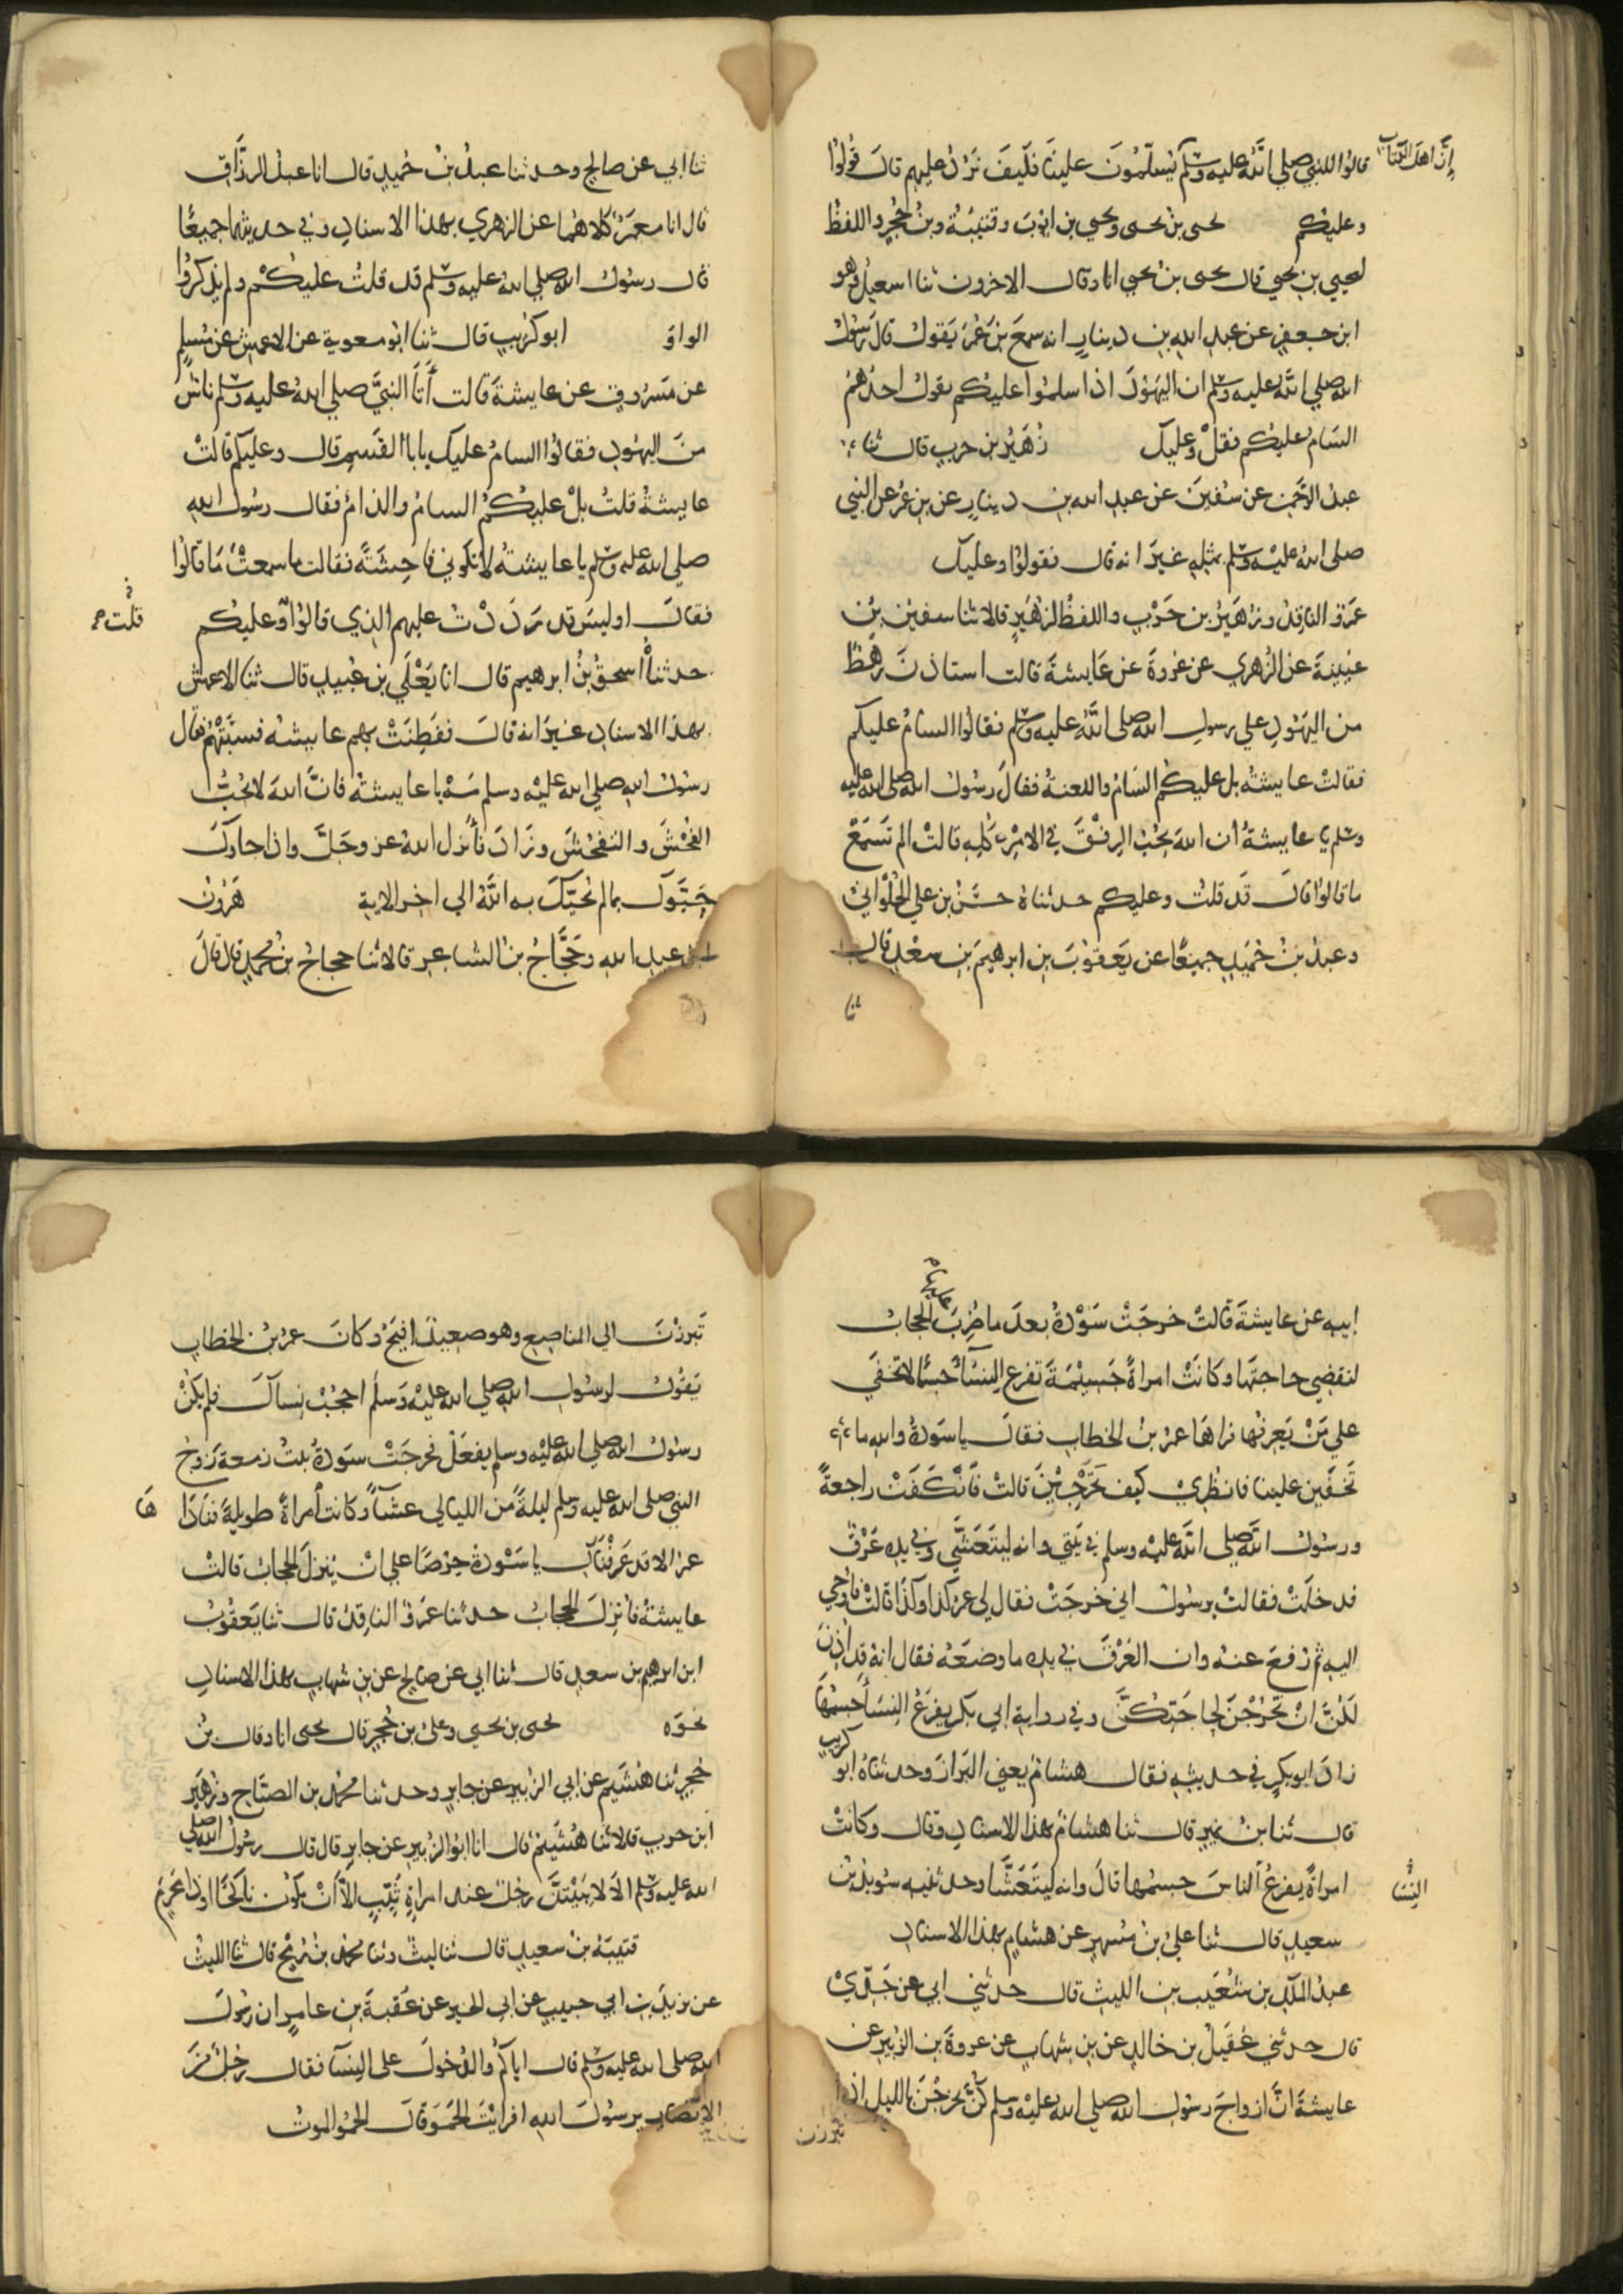 إن اهل الكتاب
قالوا للنبي صلى الله عليه وسلم يُسلّمُونَ علينَا فكيفَ نَرُدُّ عليهم قالَ قُولوُا
وعليكم يحيى بن يحيى ويحيى بن ايوبَ وقتيبةُ وبنُ حُجْرٍ واللفظُ
ليحيى بن يحيى قال يحيى بنُ يحيى انا وقال الاخرون ثنا اسمعيلُ وهو
ابن جعفرٍ عن عبدِ اللهِ بنِ دينارٍ انه سمعَ بنَ عُمَرَ يَقولُ قالَ رَسُولُ
الله صلى اللهُ عليه وسلم ان اليهُودَ اذا سلمُوا عليكم يقول احدُهُمُ
السَامُ عليكم فقلْ وعليك زُهَيْرُ بن حربٍ قال ثنا
عبدُ الرحمن عن سُفينَ عن عبدِ الله بنِ دينارٍ عن بنِ عُمَرَ عنِ النبي
صلى اللهُ عليه وسلم بمثلِهِ غيرَ انه قال فقولوُا وعليك
عَمرٌو الناقِدُ وزهيرُ بن حَرْبٍ واللفظُ لزُهَيرٍ قالا ثنا سفينُ بنُ
عيينةَ عن الزُهري عن عروةَ عن عَايشةَ قالت استاذَنَ رهطٌ
من اليَهُودِ علي رسولِ الله صلى اللهُ عليه وسلم فقالوا السامُ عليكم
فقالتْ عايشةُ بل عليكم السَامُ واللعنةُ فقالَ رسُولُ الله صلى الله عليه
وسلم يا عايشةُ ان اللهَ يحُبُّ الرِفْقَ في الامْرِ كلِهِ قالتْ الم تَسمَعْ
ما قالوُا قالَ قَد قلتُ وعليكم حدثناهُ حسَنُ بن علي الحُلْوَانيُ
وعبدُ بنُ حُمَيدٍ جميعًا عن يَعقوُبَ بنِ ابرهيمَ بنِ سَعْدٍ قال
ثنا
ثنا ابي عن صالحٍ وحدثنا عبدُ بنُ حُميدٍ قال انا عبدُ الرزَّاقِ
قال انا مَعمَرٌ كلاهُما عن الزهري بهذا الاسنادِ وفي حديثهِما جميعًا
قال رسُولُ الله صلى الله عليه وسلم قد قلتُ عليكُمْ ولم يذكرُوا
الواوَ ابو كرَيبٍ قال ثنا ابُو معويةَ عن الاعمشِ عن مُسلمٍ
عن مَسرُوقٍ عن عايشةَ قالت أتَا النبيَّ صلي اللهُ عليه وسلم ناسٌ
منَ اليهُودِ فقالوُا السامُ عليك يابا القَسِمِ قال وعليكم قالتْ
عايشةُ قلتُ بلْ عليكُمُ السامُ والذامُ فقال رسُولُ اللهِ
صلى الله عليه وسلم يا عايشةُ لا تكوُني فاحِشَةً فقالت ما سمعتُ مَا قالُوا
فقالَ اوليسَ قد رَدَدْتُ عليهم الذي قالوُا وعليكم
قلت
حدثنا اسحقُ بنُ ابرهيم قال انا يَعْلَي بن عُبيدٍ قال ثنا الاعمش
بهذا الاسنادِ غيرَ انه قالَ ففَطِنَتْ بهم عايشةُ فسبَّتْهُم فقال
رسُولُ الله صلي اللهُ عليْه وسلم مَهْ يا عايشةُ فانَّ اللهَ لا يُحبُّ
الفُحْشَ والتفحُشَ وزَادَ فأنزل اللهُ عز وجَلَّ واذا جاوُكَ
حَيَّوك بما لم يُحيِّكَ به اللهُ الي اخر الاية هَرُونُ
بن عبدِ اللهِ وحَجَّاجُ بنُ الشاعِرِ قالا ثنا حجاجُ بنُ محمدٍ قال قالَ
ابيه عن عايشةَ قالتْ خرجَتْ سَوْدةُ بعدَ ما ضُرِبَ الحجابُ
عليها
لتقضِي حاجتَها وكانَتْ امراةً جَسيْمَةً تفرع النِسَآءَ جسمًا لا تخفَي
علي مَنْ يَعرفُها فراهَا عمرُ بنُ الخطابِ فقالَ يا سَودَةُ واللهِ ما
تَخفَين علينا فانظري كيفَ تَخْرُجِيْنَ قالتْ فَانكَفَتْ راجعةً
ورسُولُ اللهِ صلى اللهُ عليه وسلم في بَيتي وانه ليتَعَشَّي وفي يدِه عَرْقٌ
فدخلَتْ فقالتْ يرسُولَ اللهِ اني خرجَتْ فقال لي عمرُ كذا وكذا قالتْ فاوحي
اليه ثم رُفِعَ عنهُ وان العَرْقَ في يدِه ما وضعَهُ فقال انهُ قد اُذِنَ
لكُنَّ انْ تَخرُجْنَ لحاجَتِكُنَّ وفي روايةِ ابي بكرٍ يفرَعُ النِسَأ جسمُها
زادَ ابو بكرٍ في حديثِهِ فقال هشامٌ يعني البَرازَ وحدثناهُ ابو كريبٍ
قال ثنا ابنُ نميرٍ قال ثنا هشامٌ بهذا الاسنادِ وقال وكانتْ
امراةً يفرعُ الناسَ جسمُها قالَ وانه ليتَعَشَّا وحدثنيه سُويدُ بنُ
النِسَا
سعيدٍ قال ثنا عليُ بنُ مُسهِرٍ عن هشامٍ بهذا الاسنادِ
عبدُ الملكِ بن شُعَيبِ بنِ الليثِ قال حدثني ابي عن جَدّيْ
قال حدثني عُقَيلُ بن خالدٍ عن بنِ شهابٍ عن عروةَ بن الزبيرِ عن
عايشةَ انَّ ازواجَ رسُولِ الله صلي اللهُ عليْه وسلم كُنَّ يخرجُنَ بالليلِ اذا
تبرزن
تَبرزْنَ الي المناصِعِ وهو صعيدٌ افيَحُ وكانَ عمرُ بنُ الخطابِ
يَقوُلُ لرسُولِ اللهِ صلي اللهُ عليْه وَسلم احجُبْ نِسآكَ فلم يكنْ
رسُولُ الله صلي اللهُ عليْه وسلم يفعَلُ فخرجَتْ سَودةُ بنتُ زمعةَ زَوجُ
النبي صلى الله عليه وسلم ليلةً من الليالي عشآءً وكانت أمراةً طويلةً فنادَا
هَا
عمرُ الا قد عَرفْناكِ يا سَوْدةُ حِرْصًا علي انْ يُنزلَ الحجابُ قالتْ
عايشةُ فأنزِلَ الحجابُ حدثنا عَمرٌو الناقِدُ قال ثنا يَعقُوبُ
ابن ابرهيم بن سعدٍ قال ثنا ابي عن صالحٍ عن بنِ شهابٍ بهذا الاسنادِ
نحوَه يحيى بن يحيى وعليُ بن حُجرٍ قال يحيى انا وقال بنُ
حُجرٍ ثنا هُشَيمٌ عن ابي الزُبيرِ عن جابرٍ وحدثنا محمدُ بن الصبَّاحِ وزُهَيرُ
ابن حربٍ قالا ثنا هُشَيمٌ قال انا ابُو الزبيرِ عن جابرٍ قال قال رسُولُ الله صلي
الله عليه وسلم الا لا يَبيْتَنَّ رجُلٌ عند امراةٍ ثَيِّبٍ الاَّ انْ يكوُنَ ناكحًا او ذا مَحْرَمٍ
قتيبةُ بنُ سعيدٍ قال ثنا ليثٌ وثنا محمدُ بنُ رُمْحٍ قال ثنا الليثُ
عن يزيدَ بنِ ابي حبيبٍ عن ابي الخيرِ عن عقبةَ بنِ عامرٍ ان رسُولَ
الله صلى الله عليه وسلم قال اياكُمْ والدُخولَ على النِسَآ فقال رجُلٌ منَ
الانْصَارِ يرسُولَ اللهِ افرايْتَ الحَمْوَ قالَ الحَمْوُ الموتُ